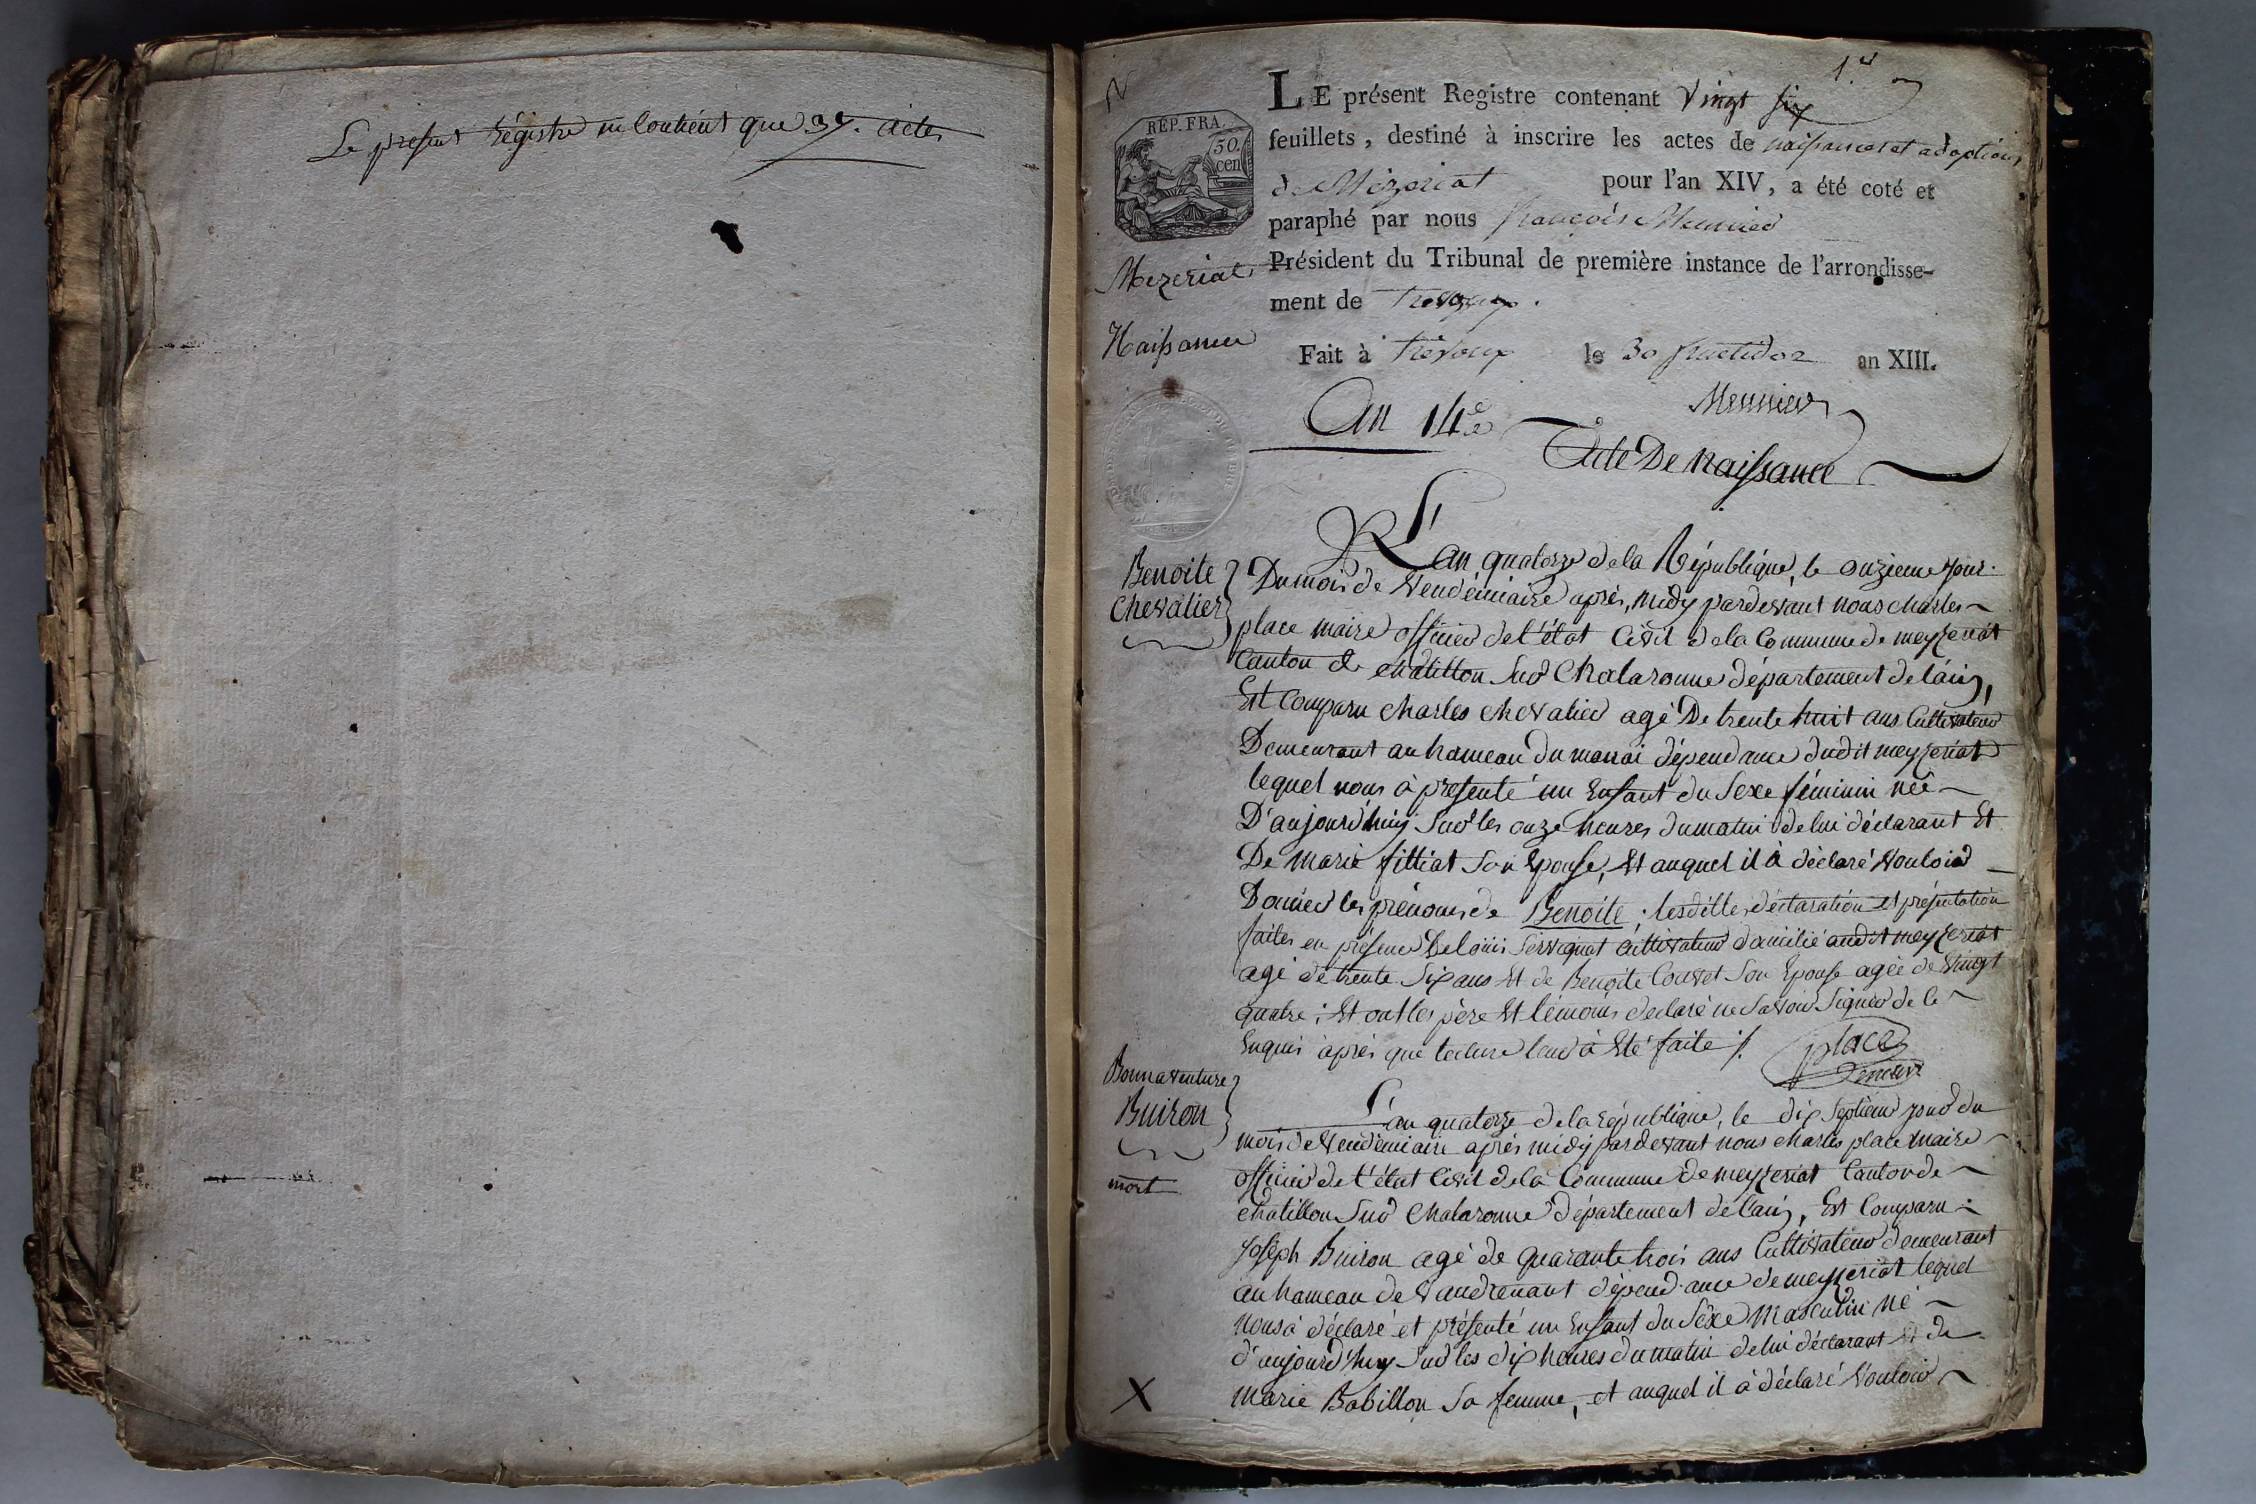 Le présent Régistre ne Contient que 37. actes
1.er
LE présent Registre contenant Vingt six
feuillets, destiné à inscrire les actes de naissances et adoptions
de Mézeriat pour l'an XIV, a été coté et
paraphé par nous françois Meunier
Président du Tribunal de première instance de l'arrondisse-
ment de Trévoux.
Fait à Trévoux le 30 fructidor an XIII.
Meunier
RÉP. FRA.
50.
cen
Mezeriat
Naissance
An 14e
Acte De Naissance
Benoite
Chevalier
L'an quatorze de la République, le onzieme jour
Du mois de Vendémiaire après, midy pardevant nous charles
place maire officier de l'état Civil de la Commune de meyzeriat
Canton de chatillon sur Chalaronne département de l'ain,
Est Comparu charles chevalier agé De trente huit ans Cultivateur
Demeurant au hameau du dépendance dudit meyzeriat
lequel nous à présenté un Enfant du Sexe féminin née
D'aujourd'huy sur les onze heures du matin de lui déclarant Et
De marie filliat son Epouse, Et auquel il à déclaré vouloir
Donner les prénoms de Benoite; lesdittes déclaration et présentation
faites en présence De loüis Servignat cultivateur domicilié audit meyzeriat
agé de trente Six ans Et de Benoite Convet Son Epouse agée de vingt
quatre; Et ont les père Et témoins declaré ne Savoir Signer de ce
Enquis après que lecture leur à Eté faite /.
place
Bonnaventure
Buiron
mort
L'an quatorze de la république, le dix Septieme jour du
mois de Vendémiaire après midy pardevant nous charles place maire
officier de l'état Civil de la Commune de meyzeriat Canton de
chatillon sur chalaronne département de l'ain, Est Comparu
Joseph Buiron agé de quarante trois ans Cultivateur demeurant
au hameau de Vaudrenant dépendance de meyzeriat lequel
nous à déclaré et présenté un Enfant du Sexe Masculin né
d'aujourd'huy sur les dix heures du matin de lui déclarant Et de
Marie Babillon Sa femme, et auquel il à déclaré Vouloir
X